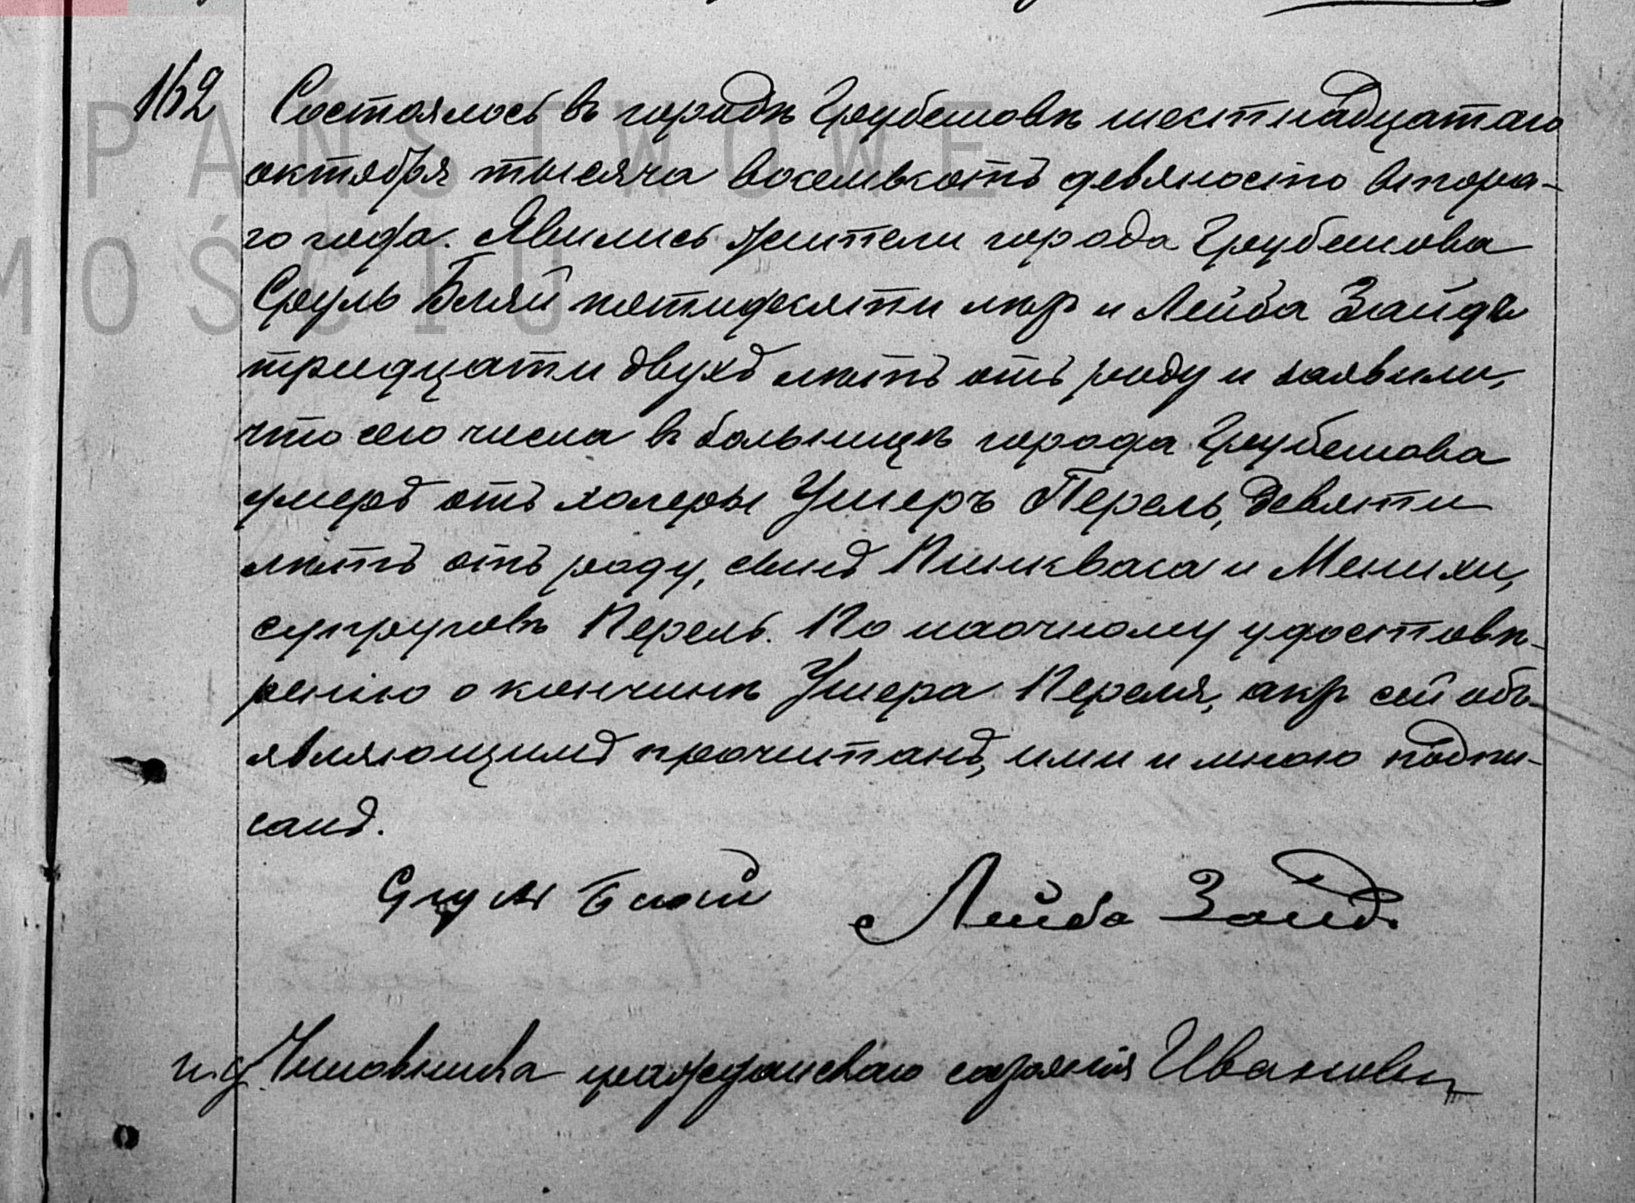 162
Состоялось въ городѣ Грубешовѣ шестнадцатаго
октября тысяча восемьсотъ девяносто втора-
го года. Явились жители города Грубешова
Сруль Бляй пятидесяти лѣтъ и Лейба Зайдъ
тридцати двухъ лѣтъ отъ роду и заявили,
что сего числа въ больницѣ города Грубешова
умеръ отъ холеры Ушеръ Перель, девяти
лѣтъ отъ роду, сынъ Пинкваса и Менихи,
супруговъ Перель. По наочному удостовѣ-
рению о кончинѣ Ушера Переля, актъ сей объ-
являющимъ прочитанъ, ими и мною подпи-
санъ.
Сруль Бляй Лейба Зайдъ.
и.д. Чиновника гражданскаго состоянія Ивановъ
PAŃSTWOWE
MOŚCIU